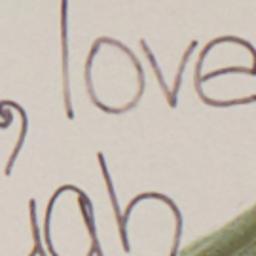 love
, 
ah